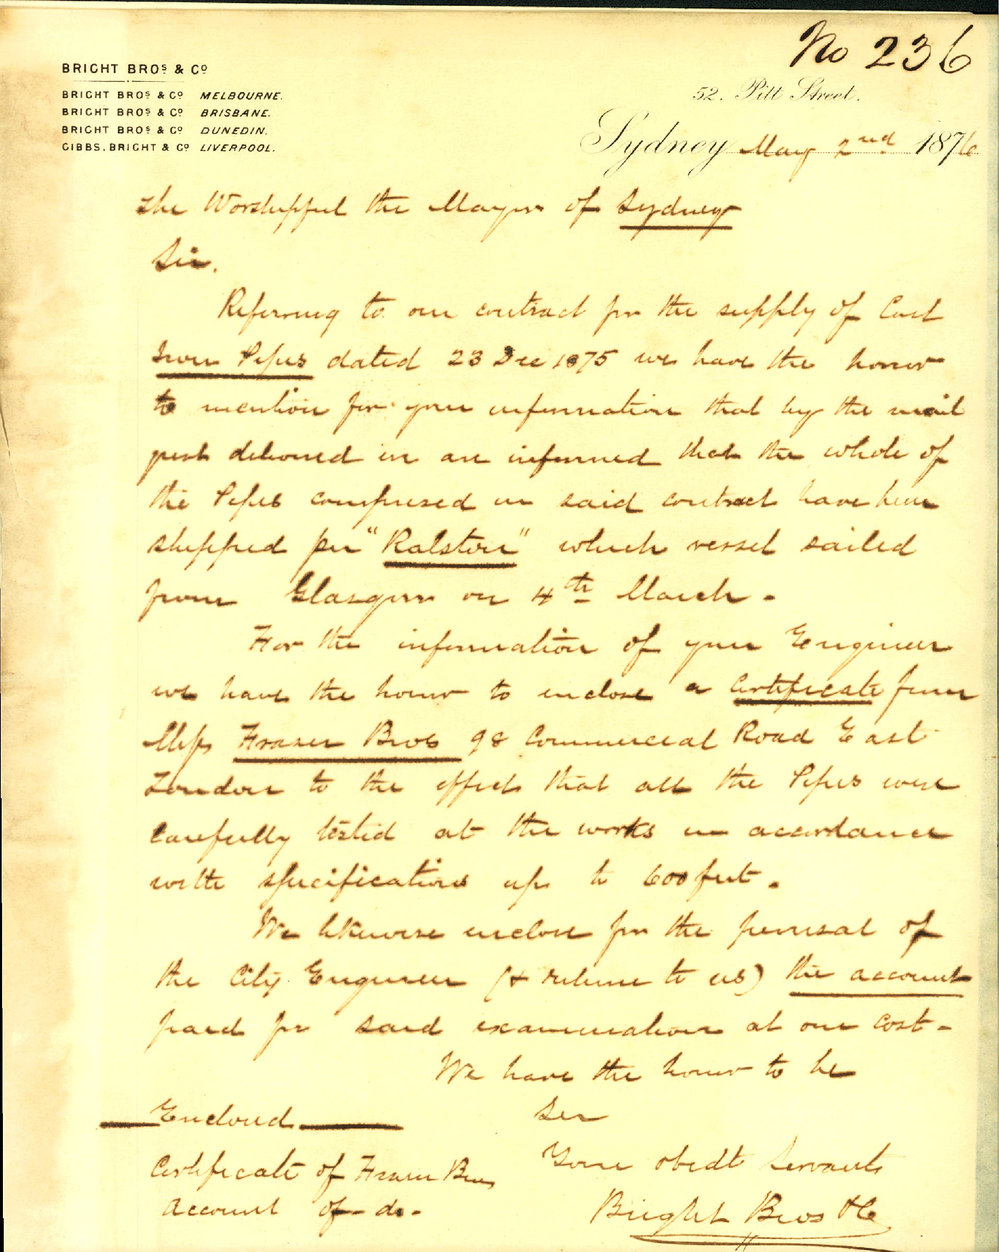 No 236
BRIGHT BROS & CO
BRIGHT BROS & CO MELBOURNE.
BRIGHT BROS & CO BRISBANE.
BRIGHT BROS & CO DUNEDIN.
GIBBS, BRIGHT & CO LIVERPOOL.
52. Pitt Street.
Sydney May 2nd 1876
The Worshipful the Mayor of Sydney
Sir.
Referring to our contract for the supply of Cast
Iron Pipes dated 23 Dec 1875 we have the honor
to mention for your information that by the mail
just delivered we are informed that the whole of
the Pipes comprised in said contract have been
shipped per "Ralston" which vessel sailed
from Glasgow on 4th March.
For the information of your Engineer
we have the honor to enclose a Certificate from
Messs Fraser Bros 98 Commercial Road East
London to the effect that all the Pipes were
carefully tested at the works in accordance
with specifications up to 600 feet.
We likewise enclose for the perusal of
the City Engineer (& return to us) the account
paid for said examination at our cost-
We have the honor to be
Enclosed
Sir
Your obedt Servants
Certificate of Fraser Bros
Account of - do -
Bright Bros & Co